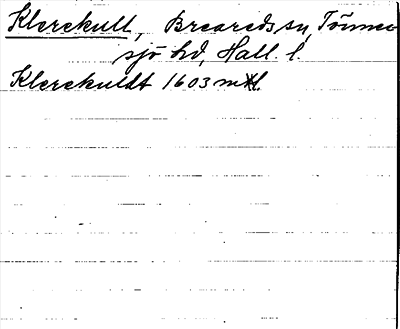 Klerekull, Breareds sn, Tönner
sjö hd, Hall. l.
Klerekuldt 1603 mtl.